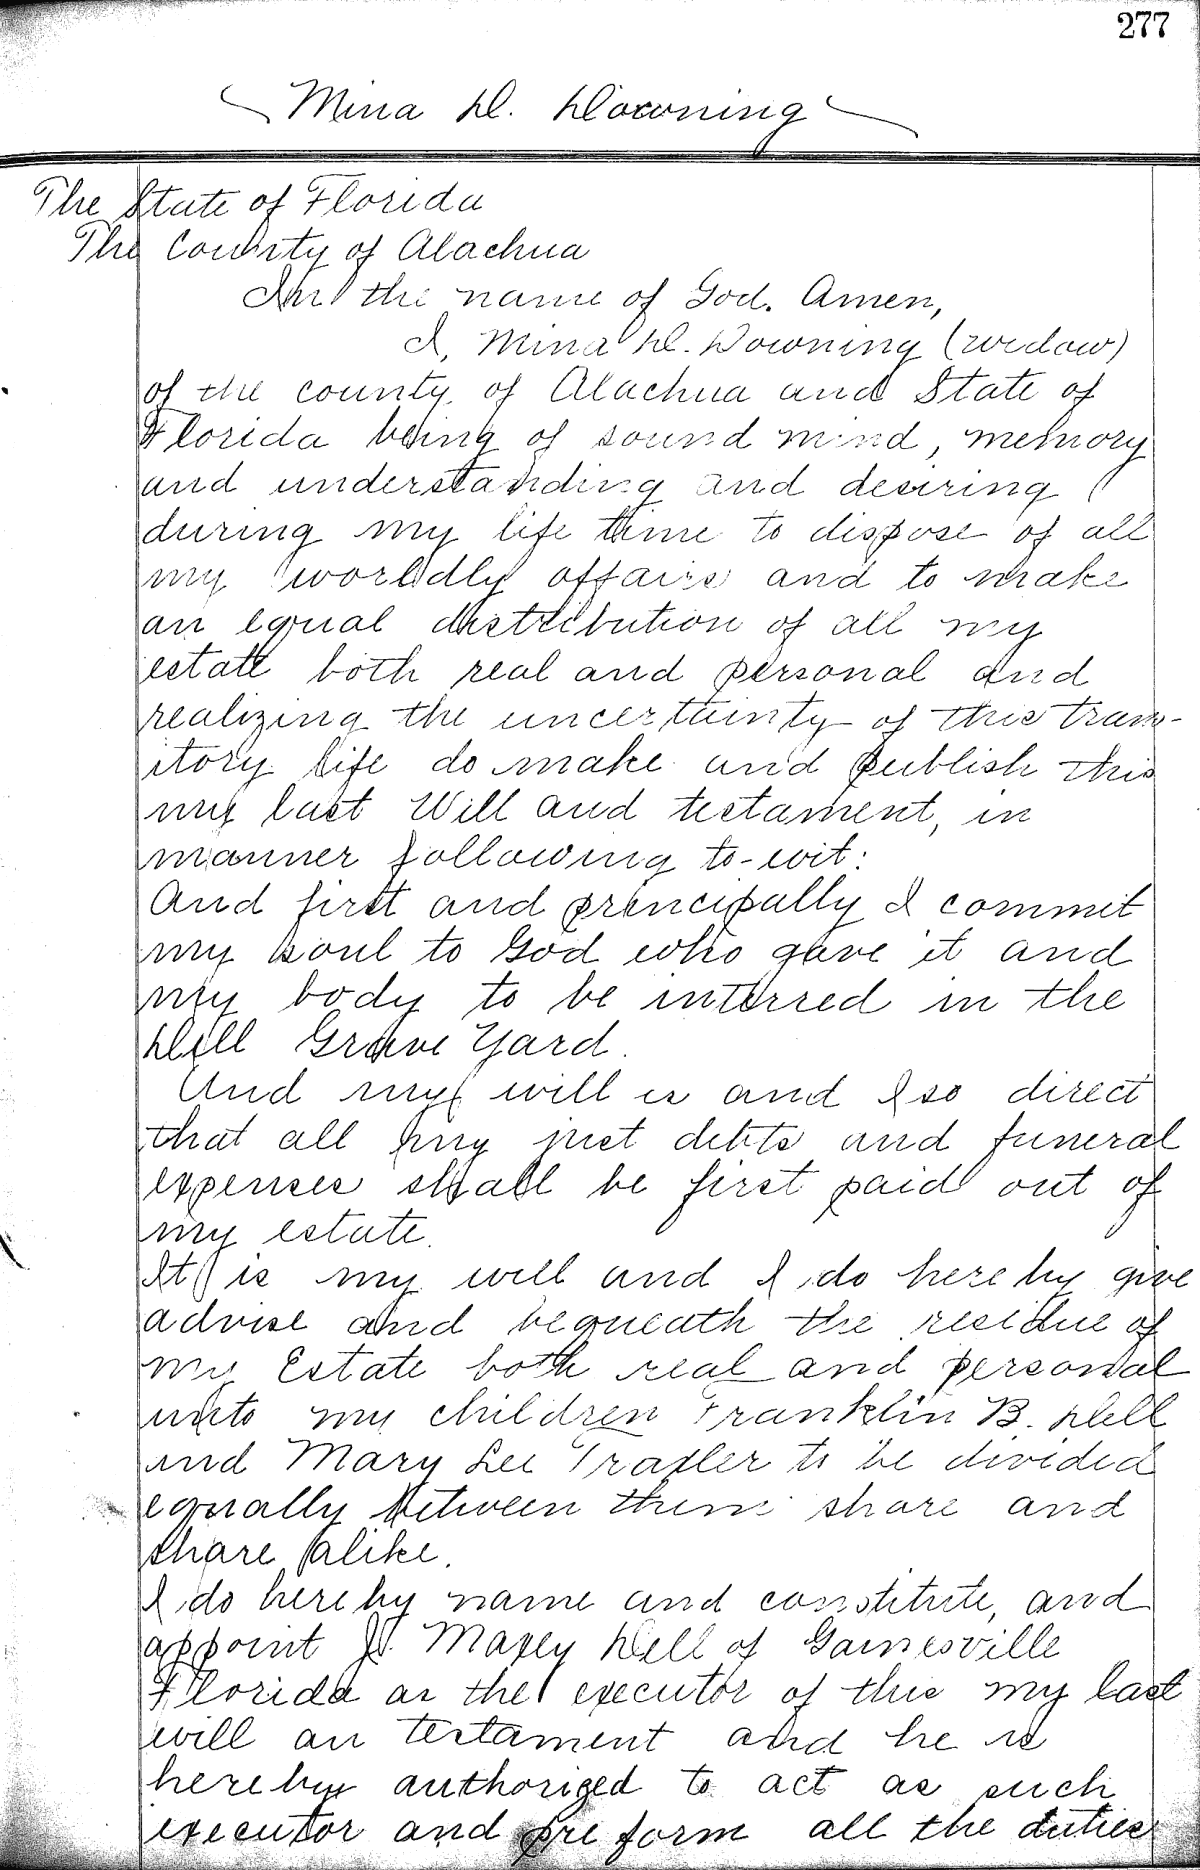 277
Mina D. Downing
The State of Florida
The County of Alachua
In the name of God. Amen,
I, Mina D. Downing (widow)
of the county of Alachua and State of
Florida being of sound mind, memory
and understanding and desiring
during my life time to dispose of all
my worldly affairs and to make
an equal distribution of all my
estate both real and personal and
realizing the uncertainty of this trans-
itory life do make and publish this
my last Will and testament, in
manner following to-wit:
And first and principally I commit
my soul to God who gave it and
my body to be interred in the
Dell Grave Yard.
And my will is and I so direct
that all my just debts and funeral
expenses shall be first paid out of
my estate.
It is my will and I do hereby give
advise and bequeath the residue of
my Estate both real and personal
unto my children Franklin B. Dell
and Mary Lee Traxler to be divided
equally between them share and
share alike.
I do hereby name and constitute, and
appoint J. Maxey Dell of Gainesville
Florida as the executor of this my last
will an testament and he is
hereby authorized to act as such
executor and preform all the duties